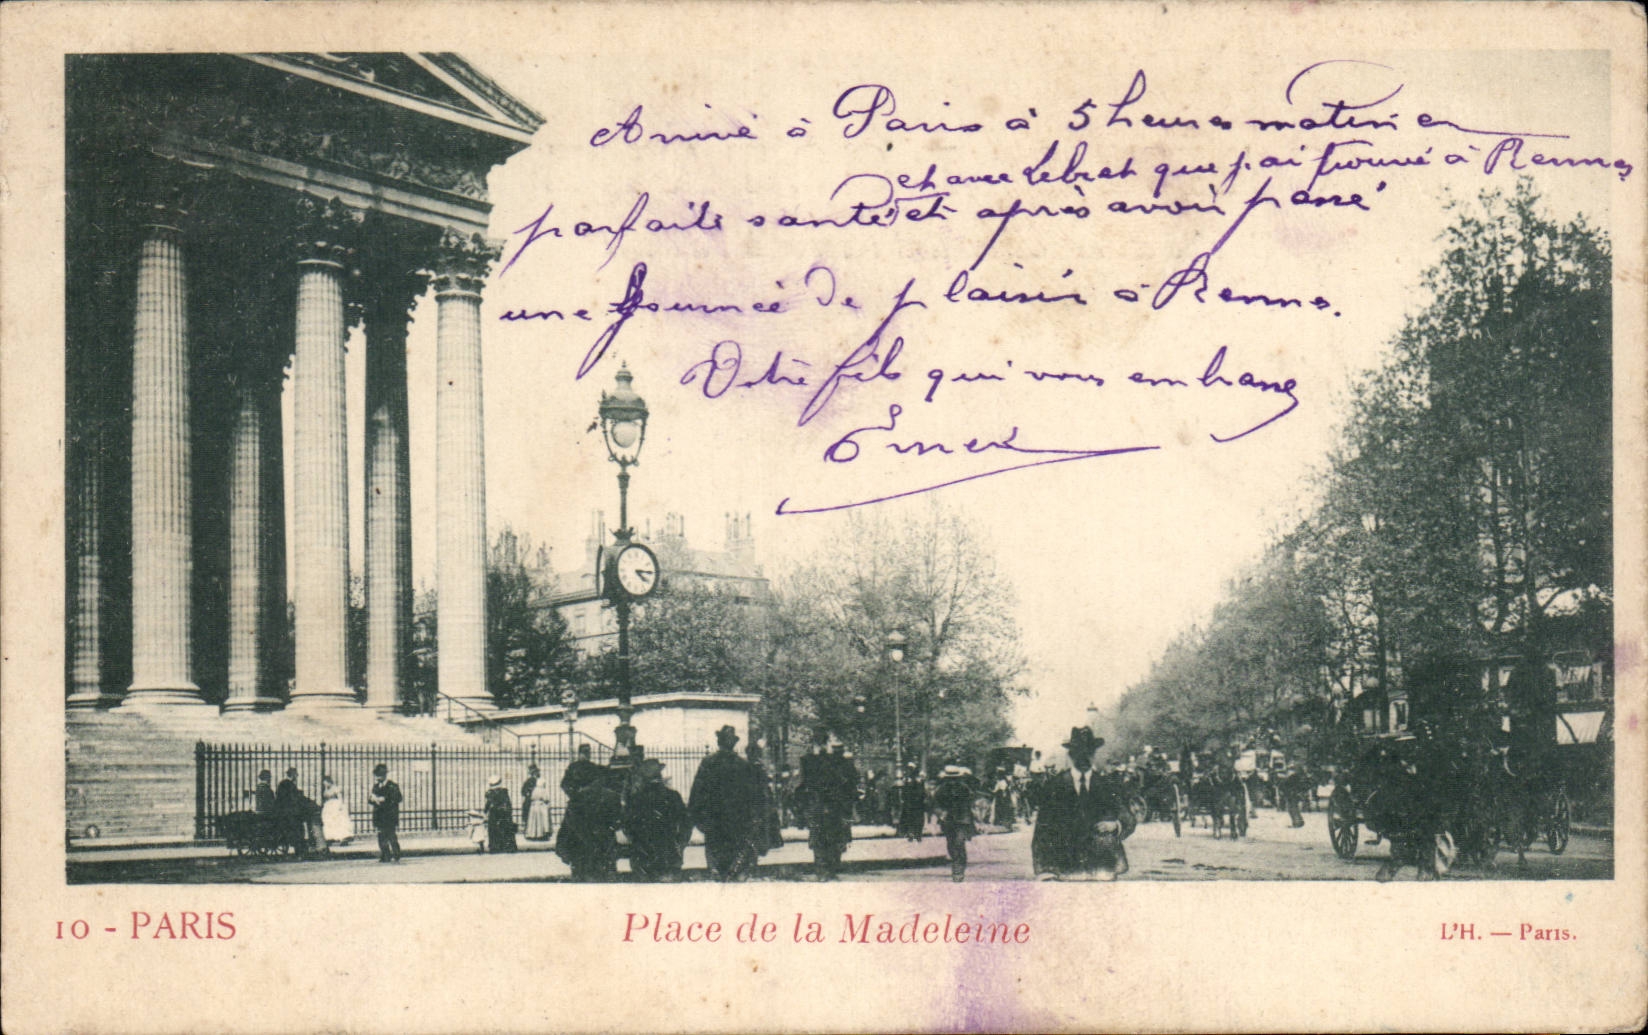 Arrivé à Paris à 5 heures matin en
et avec Lebret que j'ai trouvé à Rennes
parfaite santé et après avoir passé
une journée de plaisir à Rennes.
Votre fils qui vous embrasse
10 - PARIS
Place de la Madeleine
L'H. — Paris.